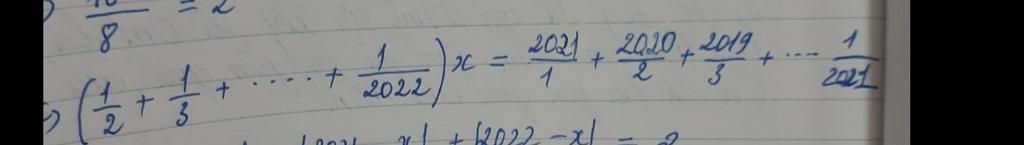 ) 10/8 = 2
) (1/2 + 1/3 + ..... + 1/2022) x = 2021/1 + 2020/2 + 2019/3 + .... 1/2021
x| + |2022 - x| =